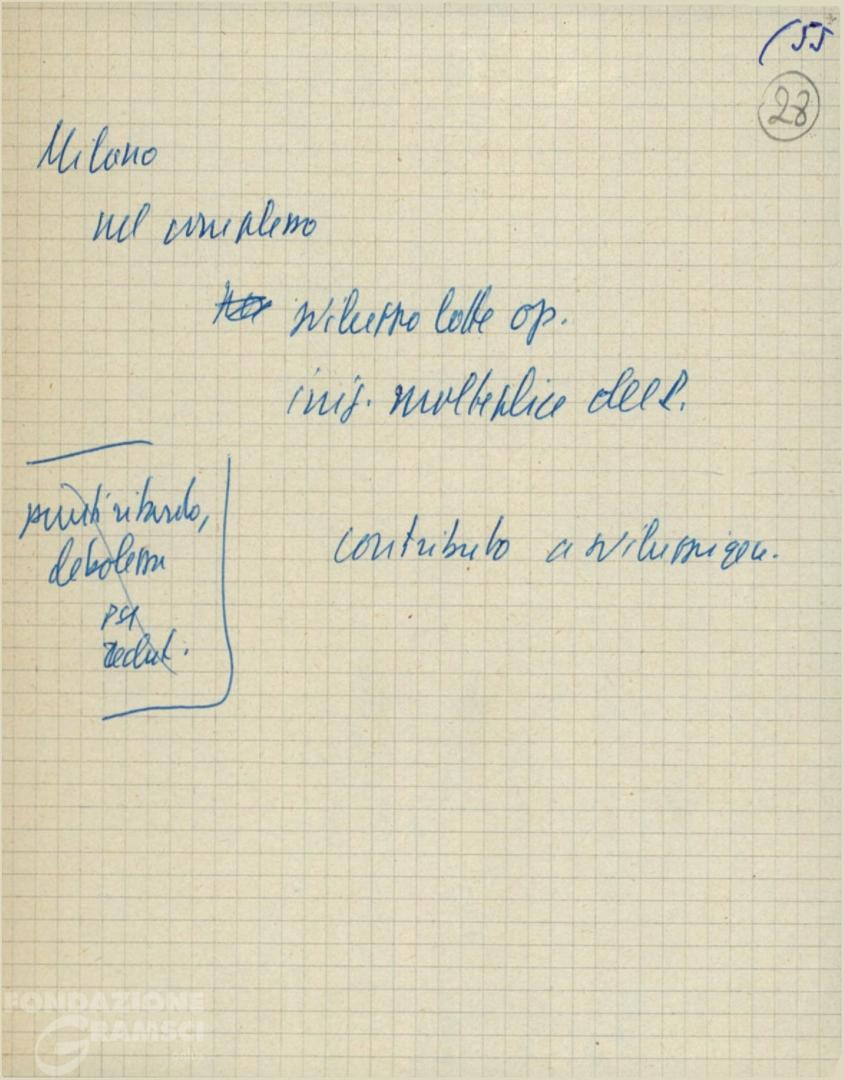 (55
28
Milano
nel complesso
sviluppo lotte op.
iniz. molteplice del P.
punti ritardo,
debolezza
PSI
contributo a sviluppi gen.
FONDAZIONE
GRAMSCI